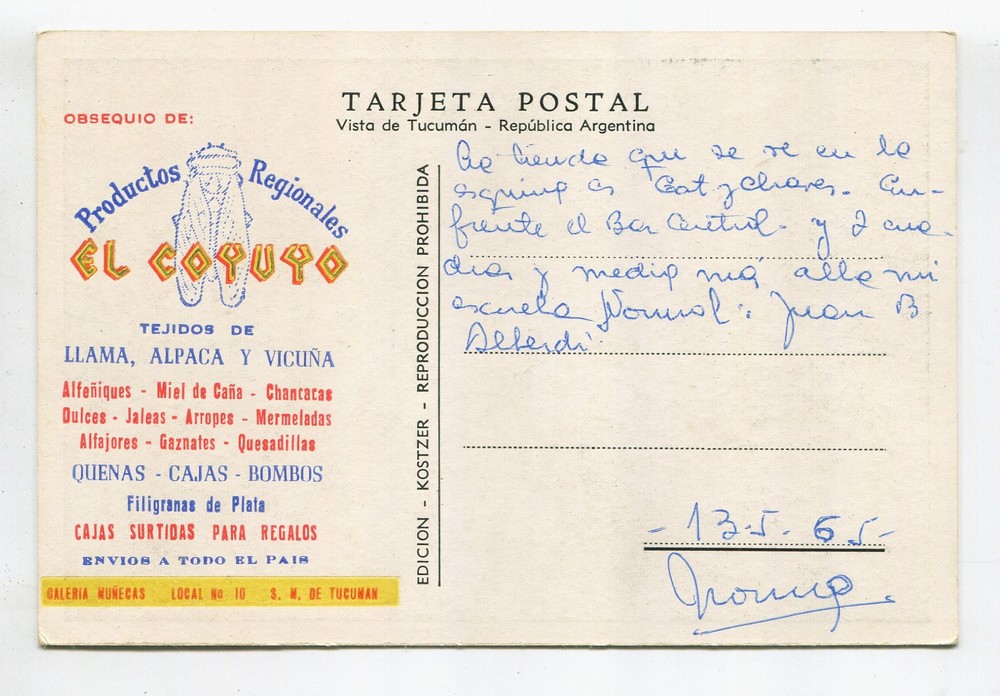 TARJETA POSTAL
Vista de Tucumán - República Argentina
OBSEQUIO DE:
Productos Regionales
EL COYUYO
TEJIDOS DE
LLAMA, ALPACA Y VICUÑA
Alfeñiques - Miel de Caña - Chancacas
Dulces - Jaleas - Arropes - Mermeladas
Alfajores - Gaznates - Quesadillas
QUENAS - CAJAS - BOMBOS
Filigranas de Plata
CAJAS SURTIDAS PARA REGALOS
ENVIOS A TODO EL PAIS
GALERIA MUÑECAS LOCAL No 10 S. M. DE TUCUMAN
EDICION - KOSTZER - REPRODUCCION PROHIBIDA
La tienda que se ve en la
esquina es Gat y Chaves. En-
frente el Bar Central. y 2 cua-
dras y media más alla mi
escuela Normal: Juan B
Alberdi
- 13-5-65-